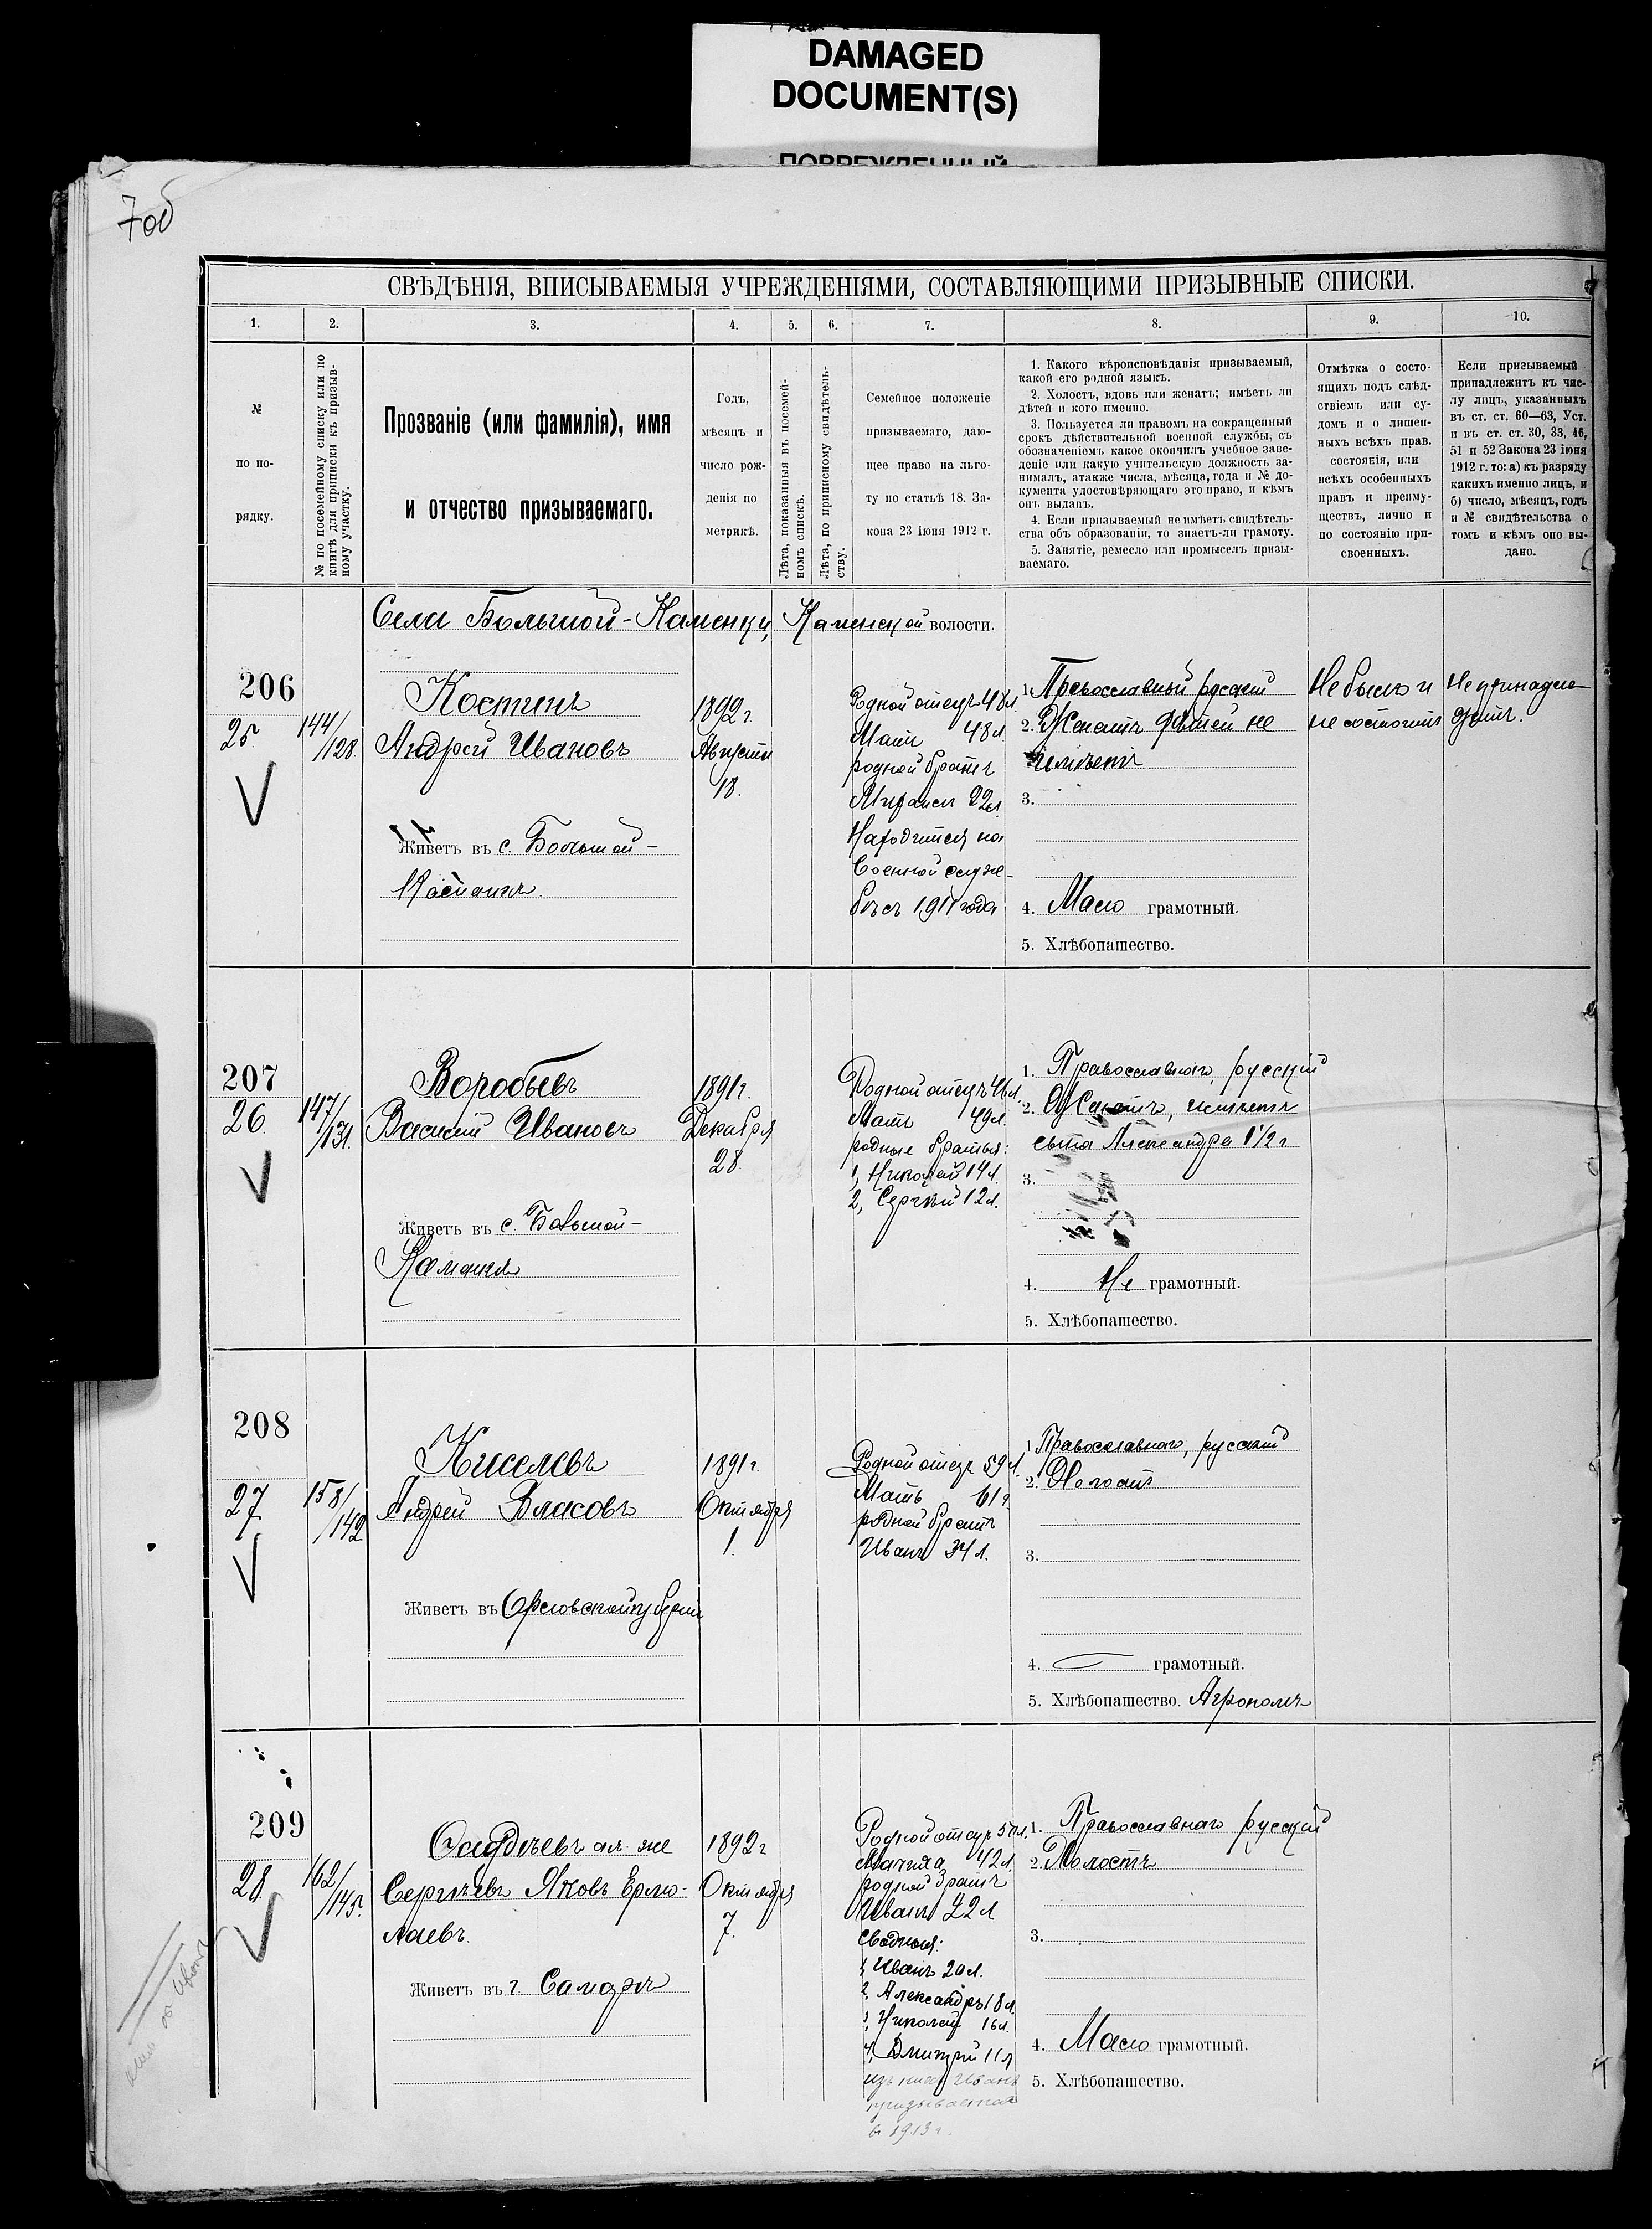 DAMAGED
DOCUMENT(S)
7 об
СВѢДѢНІЯ, ВПИСЫВАЕМЫЯ УЧРЕЖДЕНІЯМИ, СОСТАВЛЯЮЩИМИ ПРИЗЫВНЫЕ СПИСКИ.
1. 2. 3. 4. 5. 6. 7. 8. 9. 10.
№
по по-
рядку.
№ по посемейному списку или по
книгѣ для приписки къ призыв-
ному участку.
Прозваніе (или фамилія), имя
и отчество призываемаго.
Годъ,
мѣсяцъ и
число рож-
денія по
метрикѣ.
Лѣта, показанныя въ посемей-
номъ спискѣ.
Лѣта, по приписному свидѣтель-
ству.
Семейное положеніе
призываемаго, даю-
щее право на льго-
ту по статьѣ 18. За-
кона 23 іюня 1912 г.
1. Какого вѣроисповѣданія призываемый,
какой его родной языкъ.
2. Холостъ, вдовъ или женатъ; имѣетъ ли
дѣтей и кого именно.
3. Пользуется ли правомъ на сокращенный
срокъ дѣйствительной военной службы, съ
обозначеніемъ какое окончилъ учебное заве-
деніе или какую учительскую должность за-
нималъ, а также числа, мѣсяца, года и № до-
кумента удостовѣряющаго это право, и кѣмъ
онъ выданъ.
4. Если призываемый не имѣетъ свидѣтель-
ства объ образованіи, то знаетъ-ли грамоту.
5. Занятіе, ремесло или промыселъ призы-
ваемаго.
Отмѣтка о состо-
ящихъ подъ слѣд-
ствіемъ или су-
домъ и о лишен-
ныхъ всѣхъ прав.
состоянія, или
всѣхъ особенныхъ
правъ и преиму-
ществъ, лично и
по состоянію при-
своенныхъ.
Если призываемый
принадлежитъ къ чис-
лу лицъ, указанныхъ
въ ст. ст. 60—63, Уст.
и въ ст. ст. 30, 33, 46,
51 и 52 Закона 23 іюня
1912 г. то: а) къ разряду
какихъ именно лицъ, и
б) число, мѣсяцъ, годъ
и № свидѣтельства о
томъ и кѣмъ оно вы-
дано.
Села Большой-Каменки, Каменской волости.
206
25.
144/
/128.
Костинъ
Андрей Ивановъ
Живетъ въ с. Большой-
Каменкѣ.
1892 г.
Августа
18.
Родной отецъ 48 л.
Мать 48 л.
родной братъ
22 л.
Находится на
Военной служ-
бѣ съ 1911 года
1. Православный русский
2. Женатъ дѣтей не
имѣетъ
3.
4. Мало грамотный.
5. Хлѣбопашество.
Не былъ и
не состоитъ
Не принадле
житъ.
207
26.
147/
/131.
Воробьевъ
Василий Ивановъ
Живетъ въ с. Большой-
Каменкѣ
1891 г.
Декабря
28.
Родной отецъ 46 л.
Мать 49 л.
родные братья:
1, Николай 14 л.
2, Сергѣй 12 л.
1. Православнаго, русский
2. Женатъ, имѣетъ
сына Александра 1 1/2 г
3.
4. Не грамотный.
5. Хлѣбопашество.
208
27.
158/
/142
Киселевъ
Андрей Власовъ
Живетъ въ Орловской губерніи
1891 г.
Октября
1.
Родной отецъ 59 л.
Мать 61 г.
родной братъ
Иванъ 34 л.
1. Православнаго, русский
2. Холостъ
3.
4. грамотный.
5. Хлѣбопашество. Агрономъ
209
28.
162/
/145.
же
Сергѣевъ Яковъ Ермо-
лаевъ.
Живетъ въ г. Самарѣ
1892 г
Октября
7.
Родной отецъ 50 л.
Мачиха 42 л.
родной братъ
Иванъ 22 л
сводныя:
1, Иванъ 20 л.
2, Александръ 18 л
3, Николай 16 л.
4, Дмитрий 11 л
изъ нихъ Иванъ
призывается
въ 1913 г.
1. Православнаго русский
2. Холостъ
3.
4. Мало грамотный.
5. Хлѣбопашество.